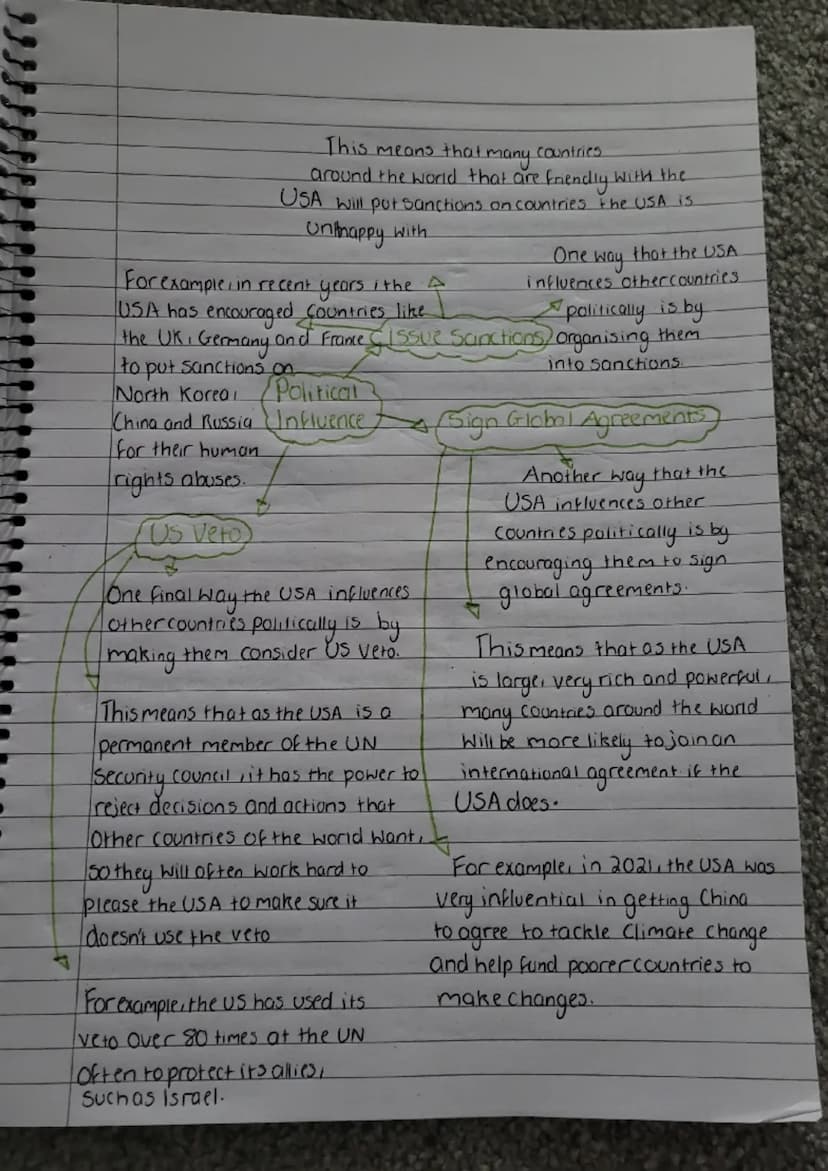 This means that many countries
around the world that are friendly with the
USA will put sanctions on countries the USA is
unhappy with
One way that the USA
influences other countries
politically is by
organising them
into sanctions.
For example, in recent years, the
USA has encouraged countries like
the UK, Germany and France
to put sanctions on
North Korea,
China and Russia
for their human
rights abuses.
Issue Sanctions
Political
Influence
Sign Global Agreements
Another way that the
USA influences other
countries politically is by
encouraging them to sign
global agreements.
This means that as the USA
is large, very rich and powerful,
many countries around the world
will be more likely to join an
international agreement if the
USA does.
For example, in 2021, the USA was
very influential in getting China
to agree to tackle climate change
and help fund poorer countries to
make changes.
US Veto
One final way the USA influences
other countries politically is by
making them consider US Veto.
This means that as the USA is a
permanent member of the UN
security council, it has the power to
reject decisions and actions that
other countries of the world want,
so they will often work hard to
please the USA to make sure it
doesn't use the veto
For example, the US has used its
veto over 80 times at the UN
often to protect its allies,
such as Israel.